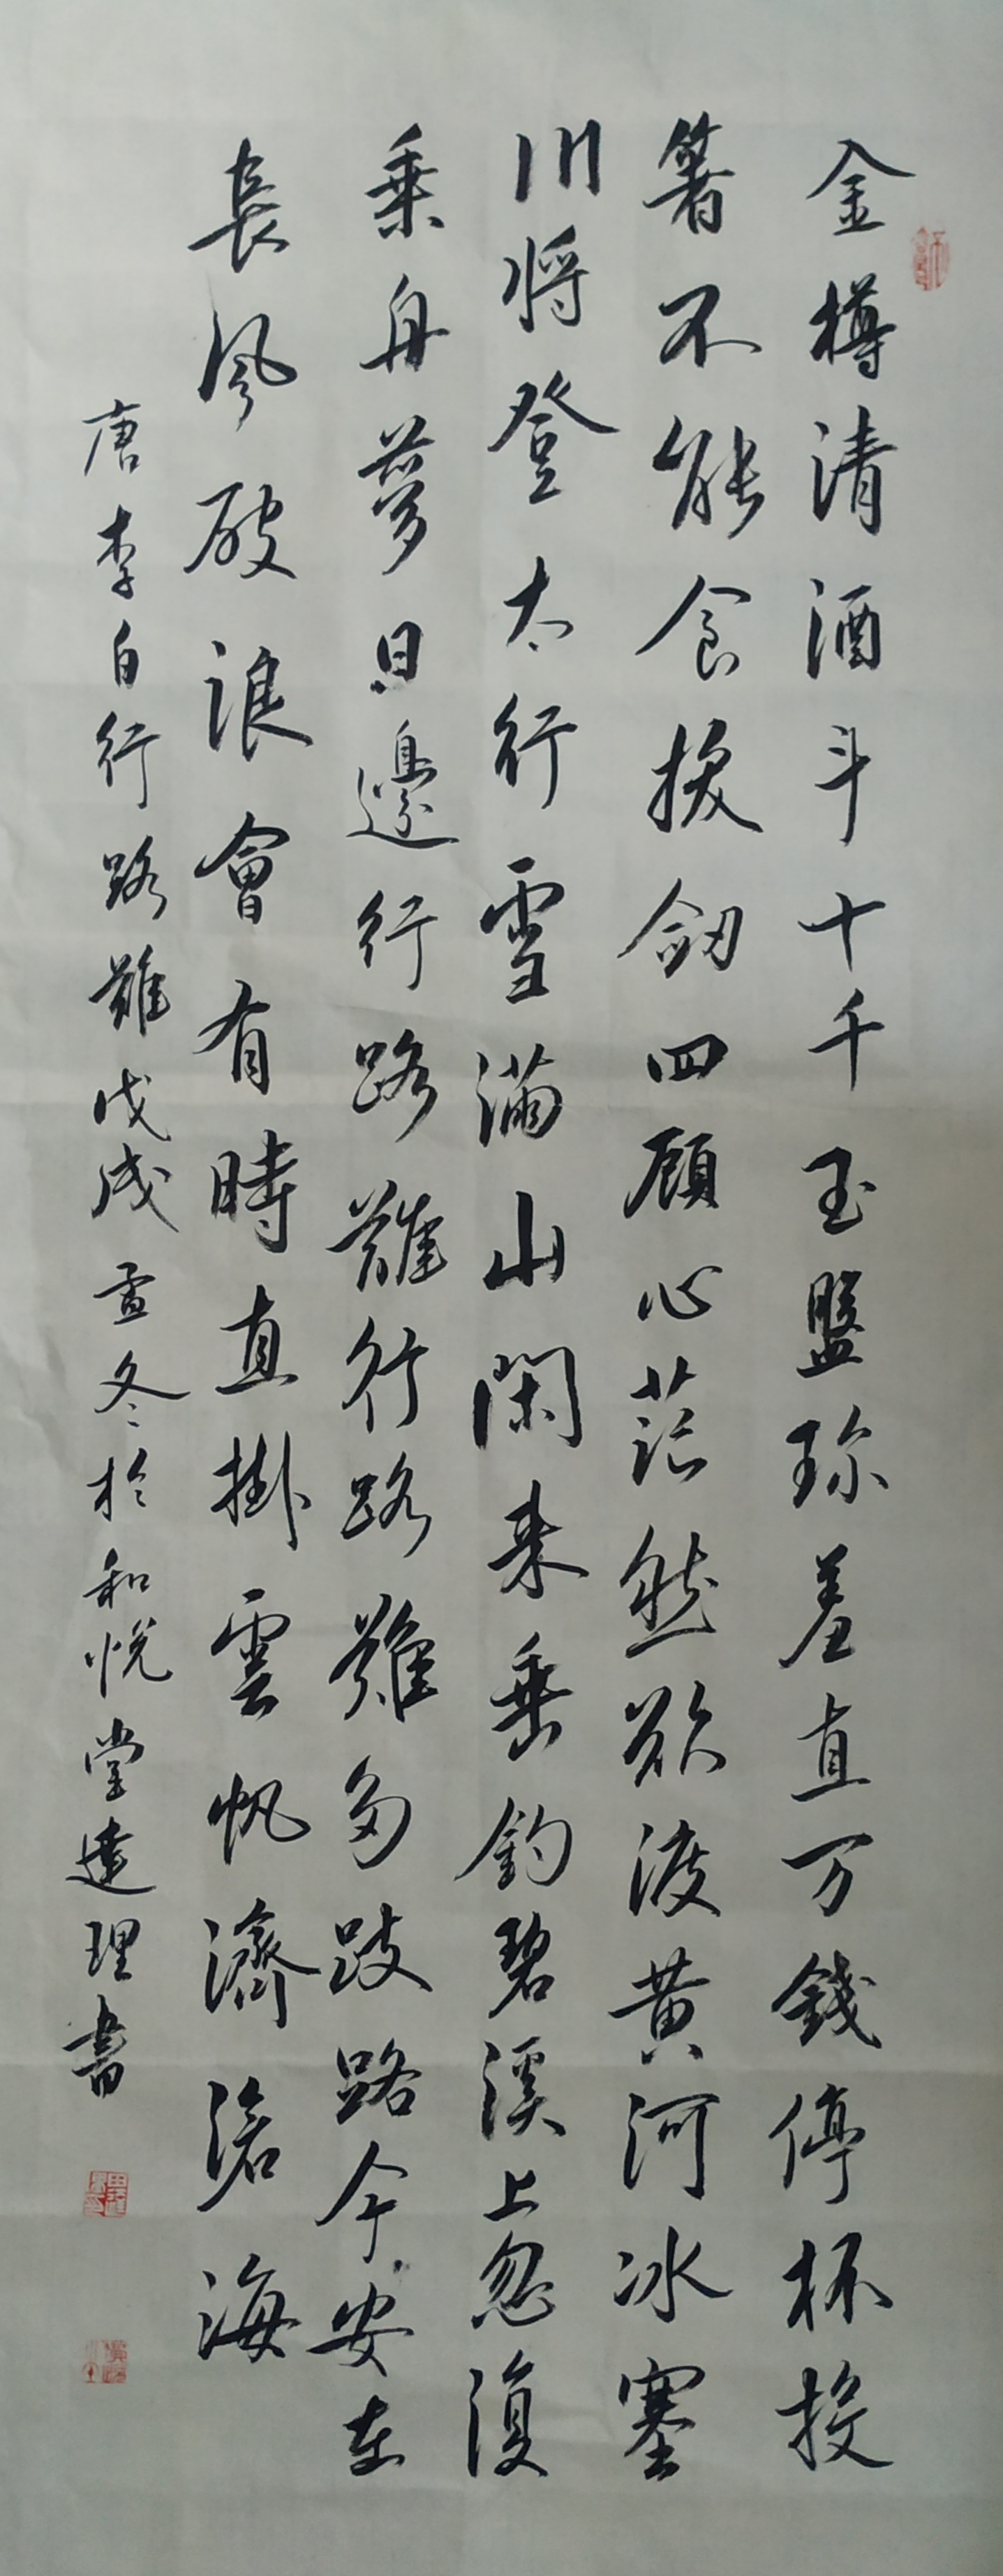 金樽清酒斗十千玉盤珎羞直万錢停杯投
箸不能食拔劒四顧心茫然欲渡黄河冰塞
川將登太行雪滿山閑来垂釣碧溪上忽復
乗舟夢日邊行路難行路難多歧路今安在
長風破浪會有時直掛雲帆濟滄海
唐李白行路難戊戌孟冬於和悦堂達理書